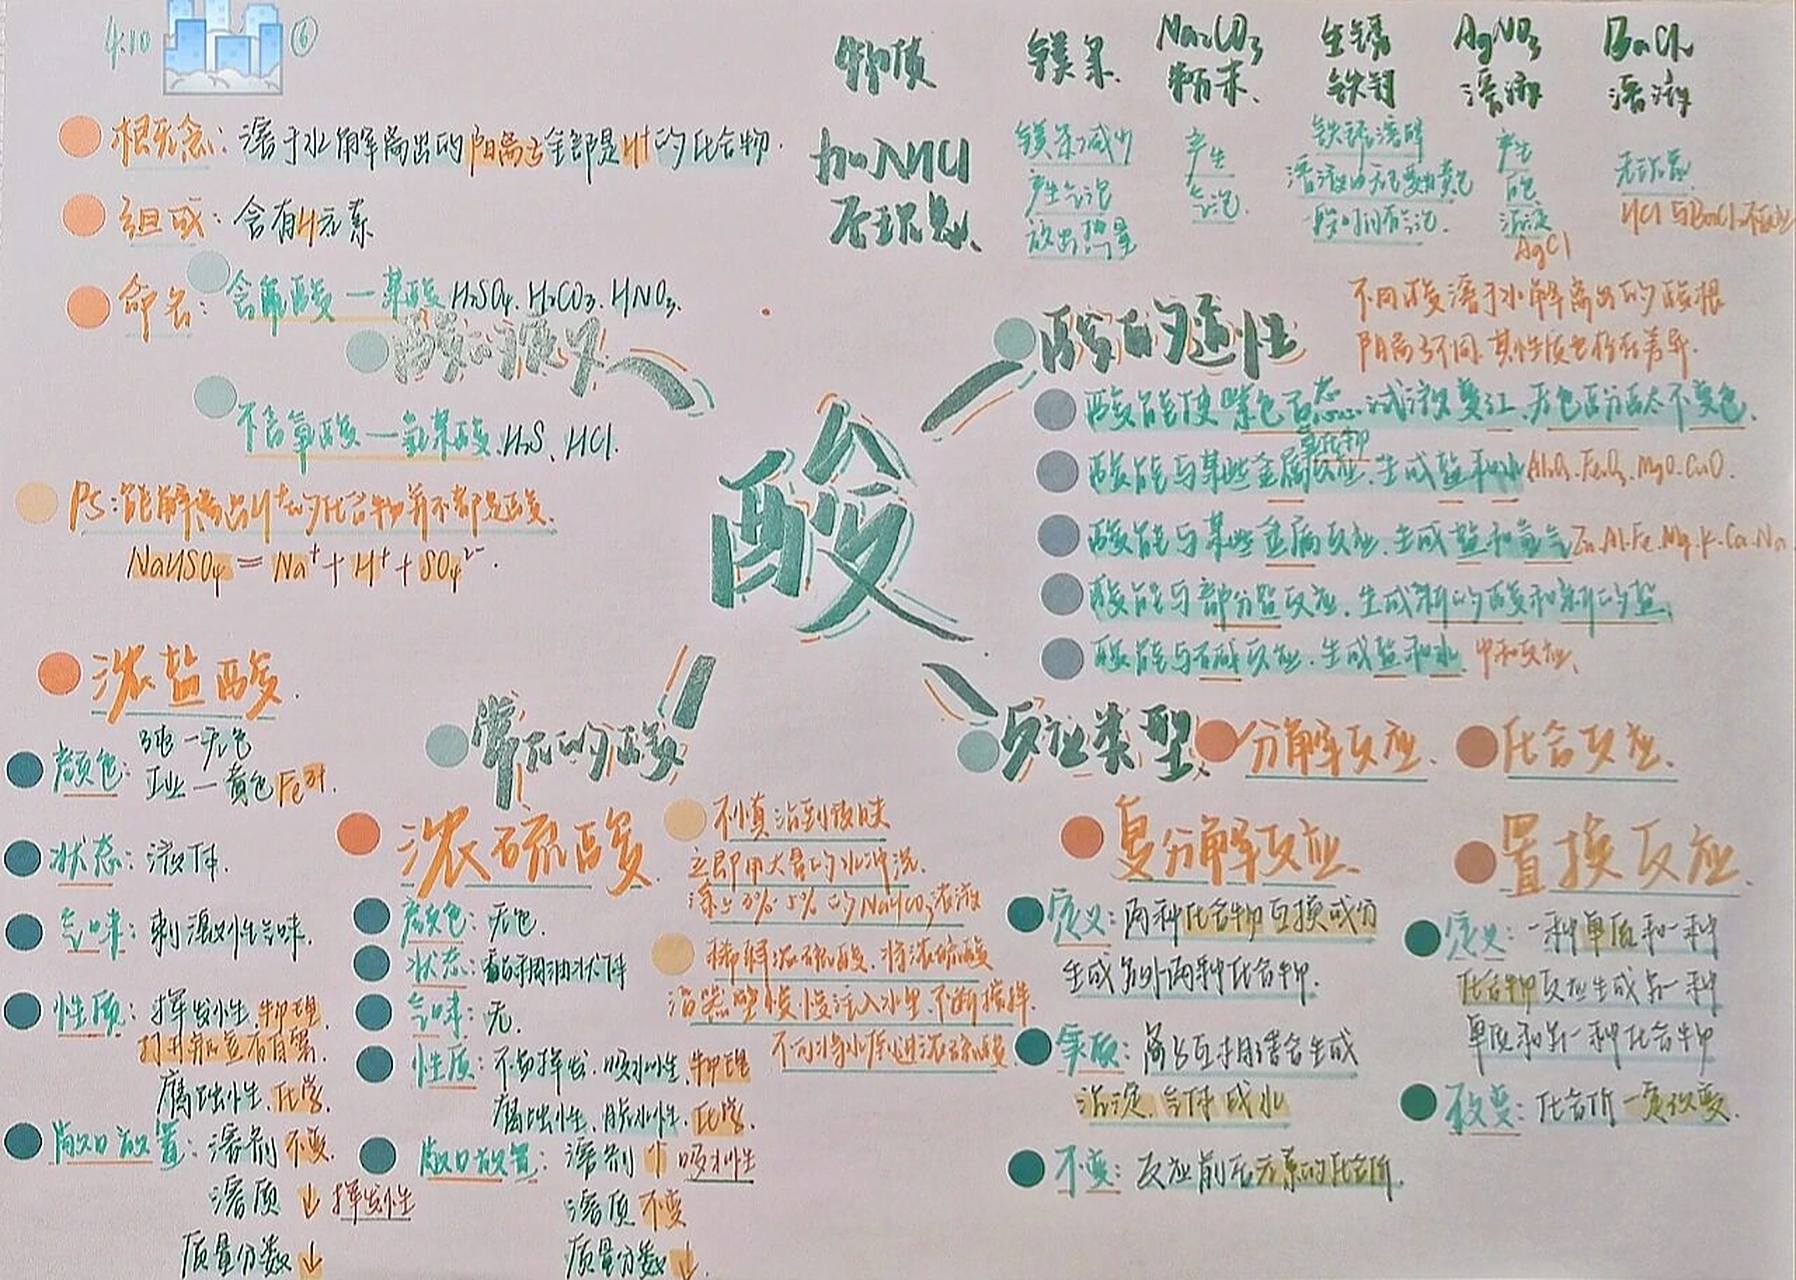 4.10 ⑥
概念：溶于水解离出的阳离子全部是H⁺的化合物.
组成：含有H元素
命名：含氧酸—某酸 H₂SO₄. H₂CO₃. HNO₃.
酸的定义
不含氧酸—氢某酸.H₂S、HCl.
PS:能解离出H⁺的化合物并不都是酸.
NaHSO₄ = Na⁺ + H⁺ + SO₄²⁻.
物质 镁条. Na₂CO₃粉末. 生锈铁钉 AgNO₃溶液 BaCl₂溶液
加入HCl后现象.
镁条减少
产生气泡
放出热量
产生
气泡.
铁锈溶解
溶液由无色变为黄色
一段时间有气泡.
产生
白色
沉淀
AgCl
无现象
HCl与BaCl₂不反应
酸
酸的通性
不同酸溶于水解离出的酸根
阴离子不同.其性质也存在差异.
酸能使紫色石蕊试液变红.无色酚酞不变色.
酸能与某些金属氧化物反应.生成盐和水 Al₂O₃.Fe₂O₃.MgO.CuO.
酸能与某些金属反应.生成盐和氢气 Zn.Al.Fe.Mg.K.Ca.Na
酸能与部分盐反应.生成新的酸和新的盐.
酸能与碱反应.生成盐和水.中和反应.
常见的酸
浓盐酸.
颜色：纯—无色
工业—黄色Fe³⁺.
状态：液体.
气味：刺激性气味.
性质：挥发性.物理.
打开瓶盖有白雾.
腐蚀性.化学.
敞口放置：溶剂 不变.
溶质 ↓ 挥发性
质量分数↓
浓硫酸.
颜色：无色.
状态：黏稠油状液体
气味：无.
性质：不易挥发.吸水性.物理
腐蚀性.脱水性.化学.
敞口放置：溶剂 ↑ 吸水性
溶质 不变
质量分数↓.
不慎沾到皮肤
立即用大量的水冲洗.
涂上3%-5%的NaHCO₃溶液
稀释浓硫酸.将浓硫酸
沿器壁慢慢注入水里.不断搅拌.
不可将水倒进浓硫酸
反应类型. 分解反应. 化合反应.
复分解反应.
定义：两种化合物互换成分
生成另外两种化合物.
实质：离子互相结合生成
沉淀.气体或水
不变：反应前后元素的化合价.
置换反应.
定义：一种单质和一种
化合物反应生成另一种
单质和另一种化合物
改变：化合价一定改变.